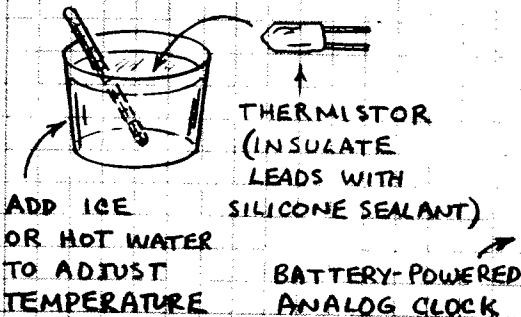 THERMISTOR
(INSULATE
LEADS WITH
SILICONE SEALANT)
ADD ICE
OR HOT WATER
TO ADJUST
TEMPERATURE
BATTERY-POWERED
ANALOG CLOCK